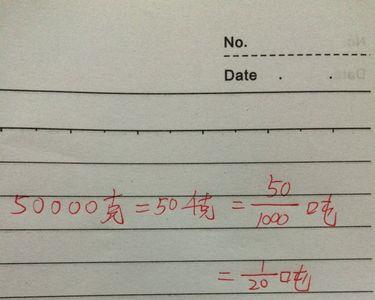 No.
Date . .
50000克 = 50千克 = 50/1000 吨
= 1/20 吨